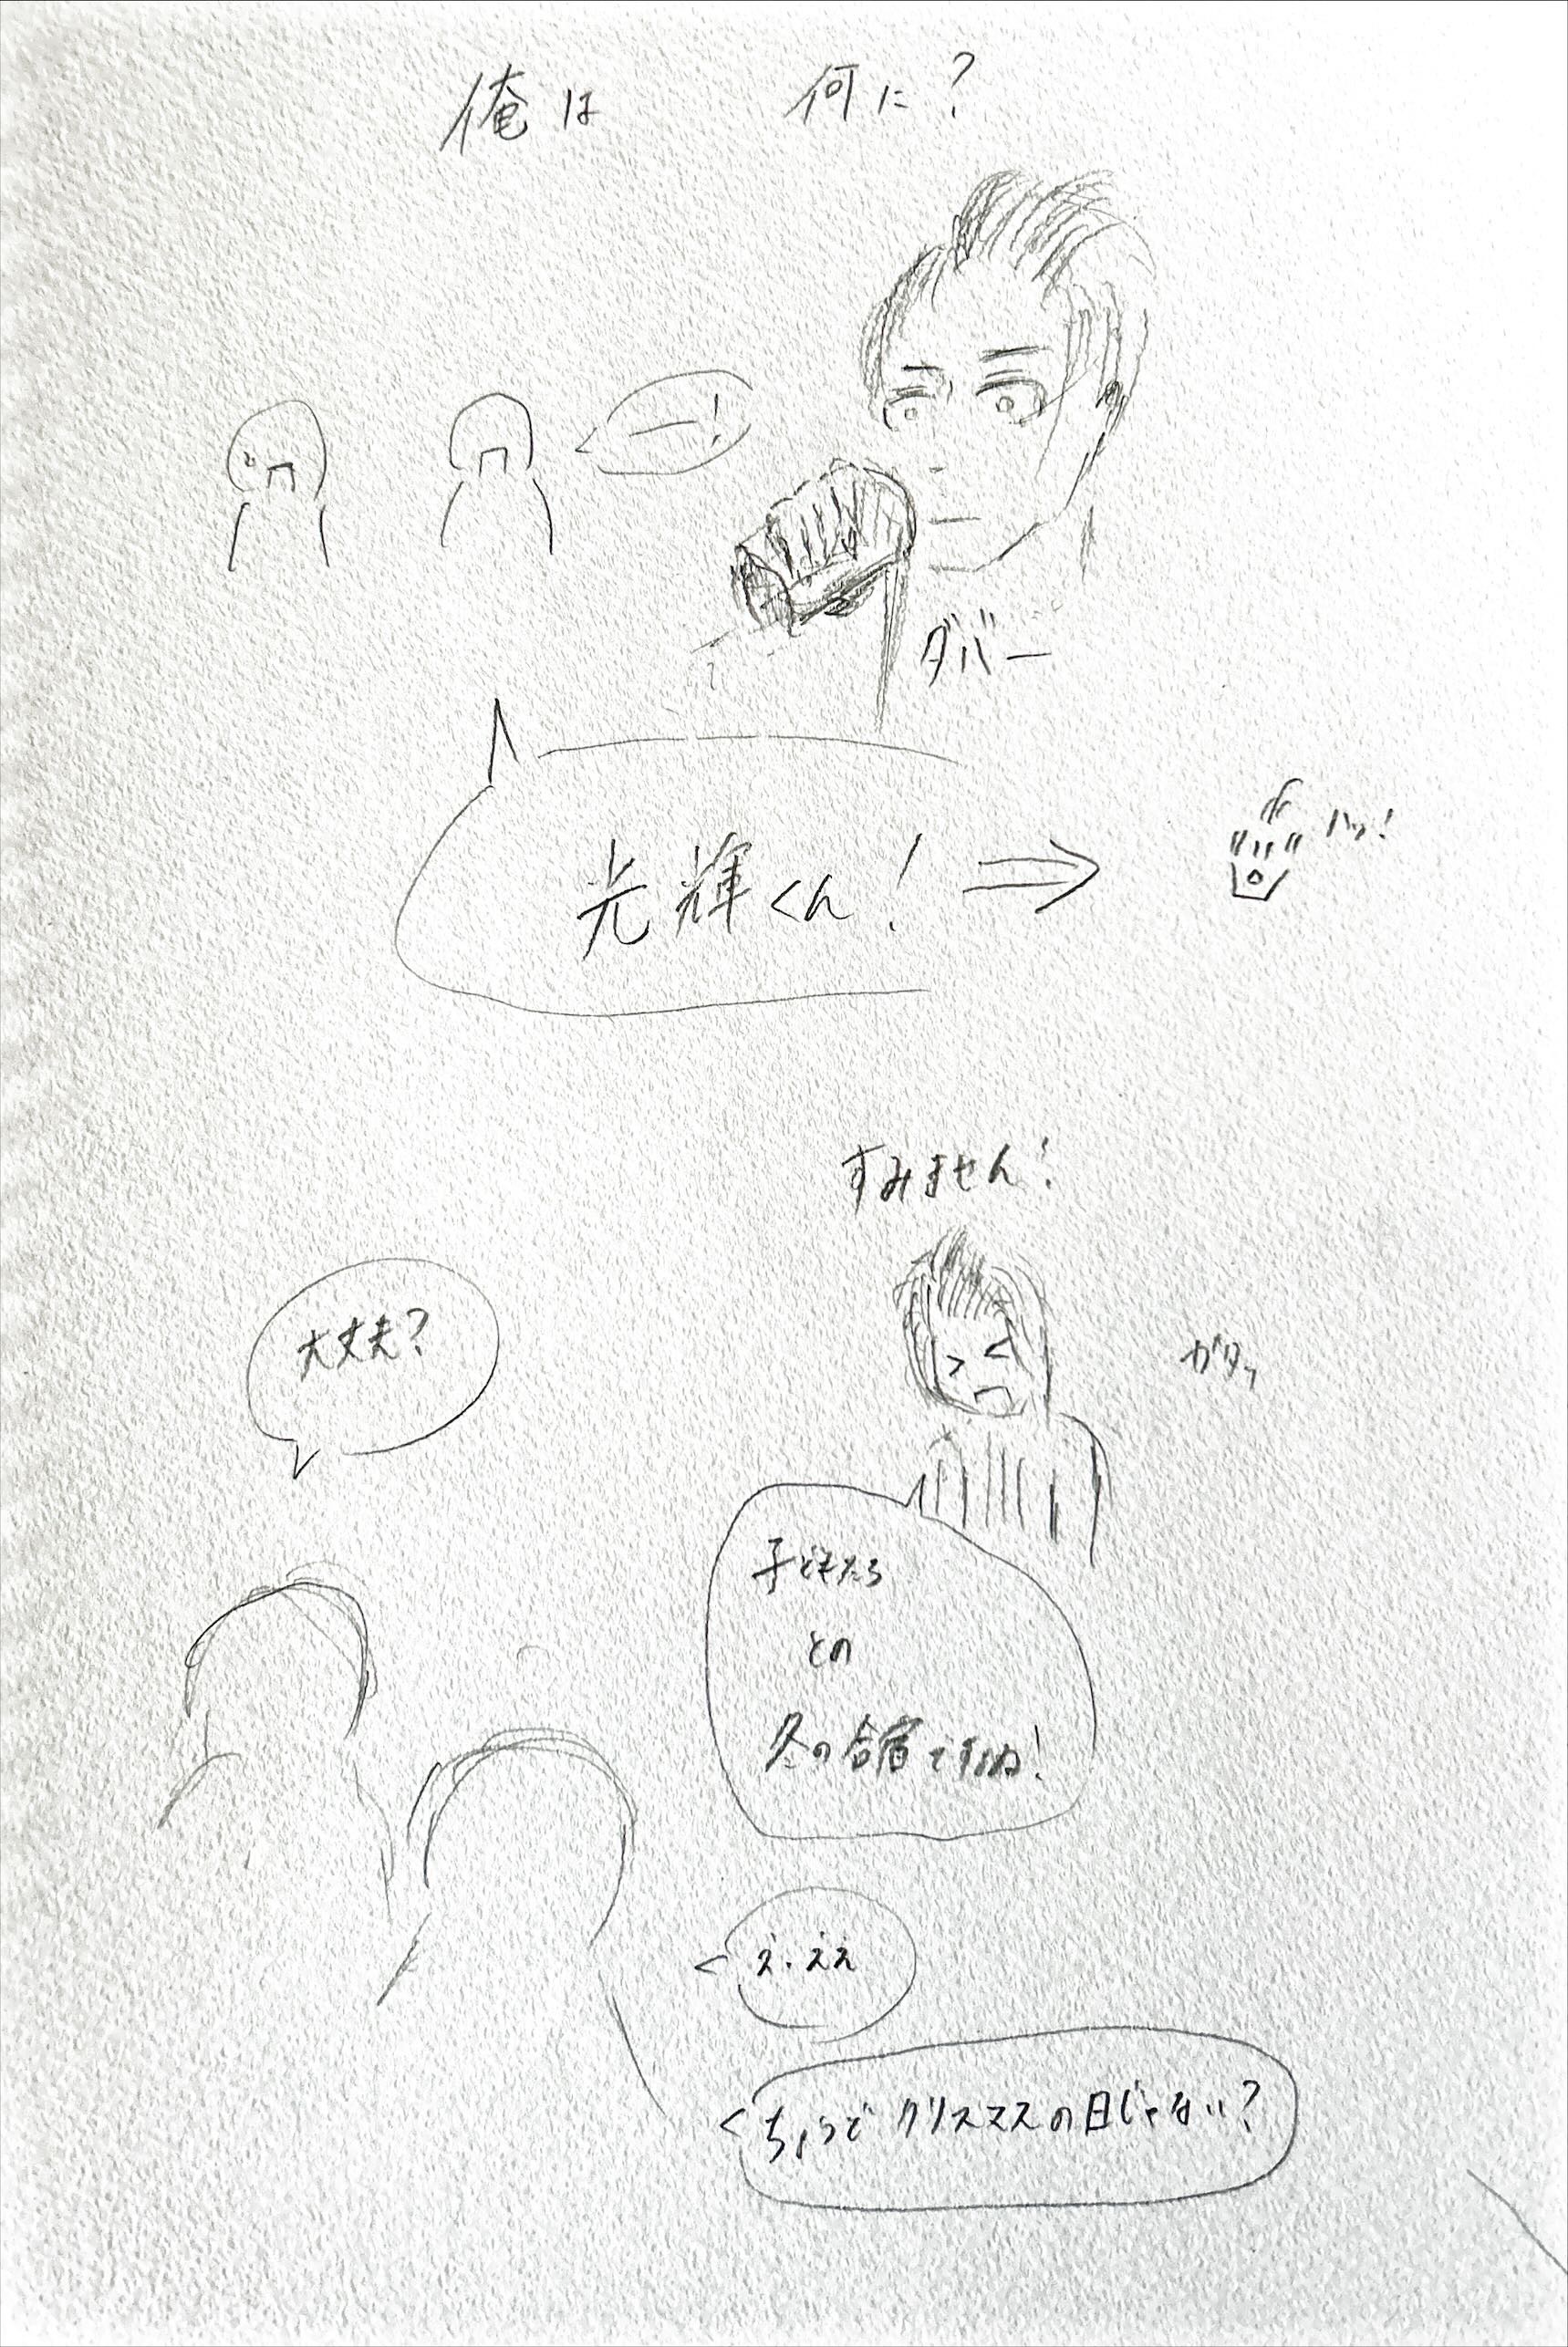 俺は 何に?
ー!
ダバー
光輝くん!
ハッ!
すみません!
大丈夫?
ガタッ
子どもたち
との
冬の合宿ですね!
え、ええ
ちょうどクリスマスの日じゃない?